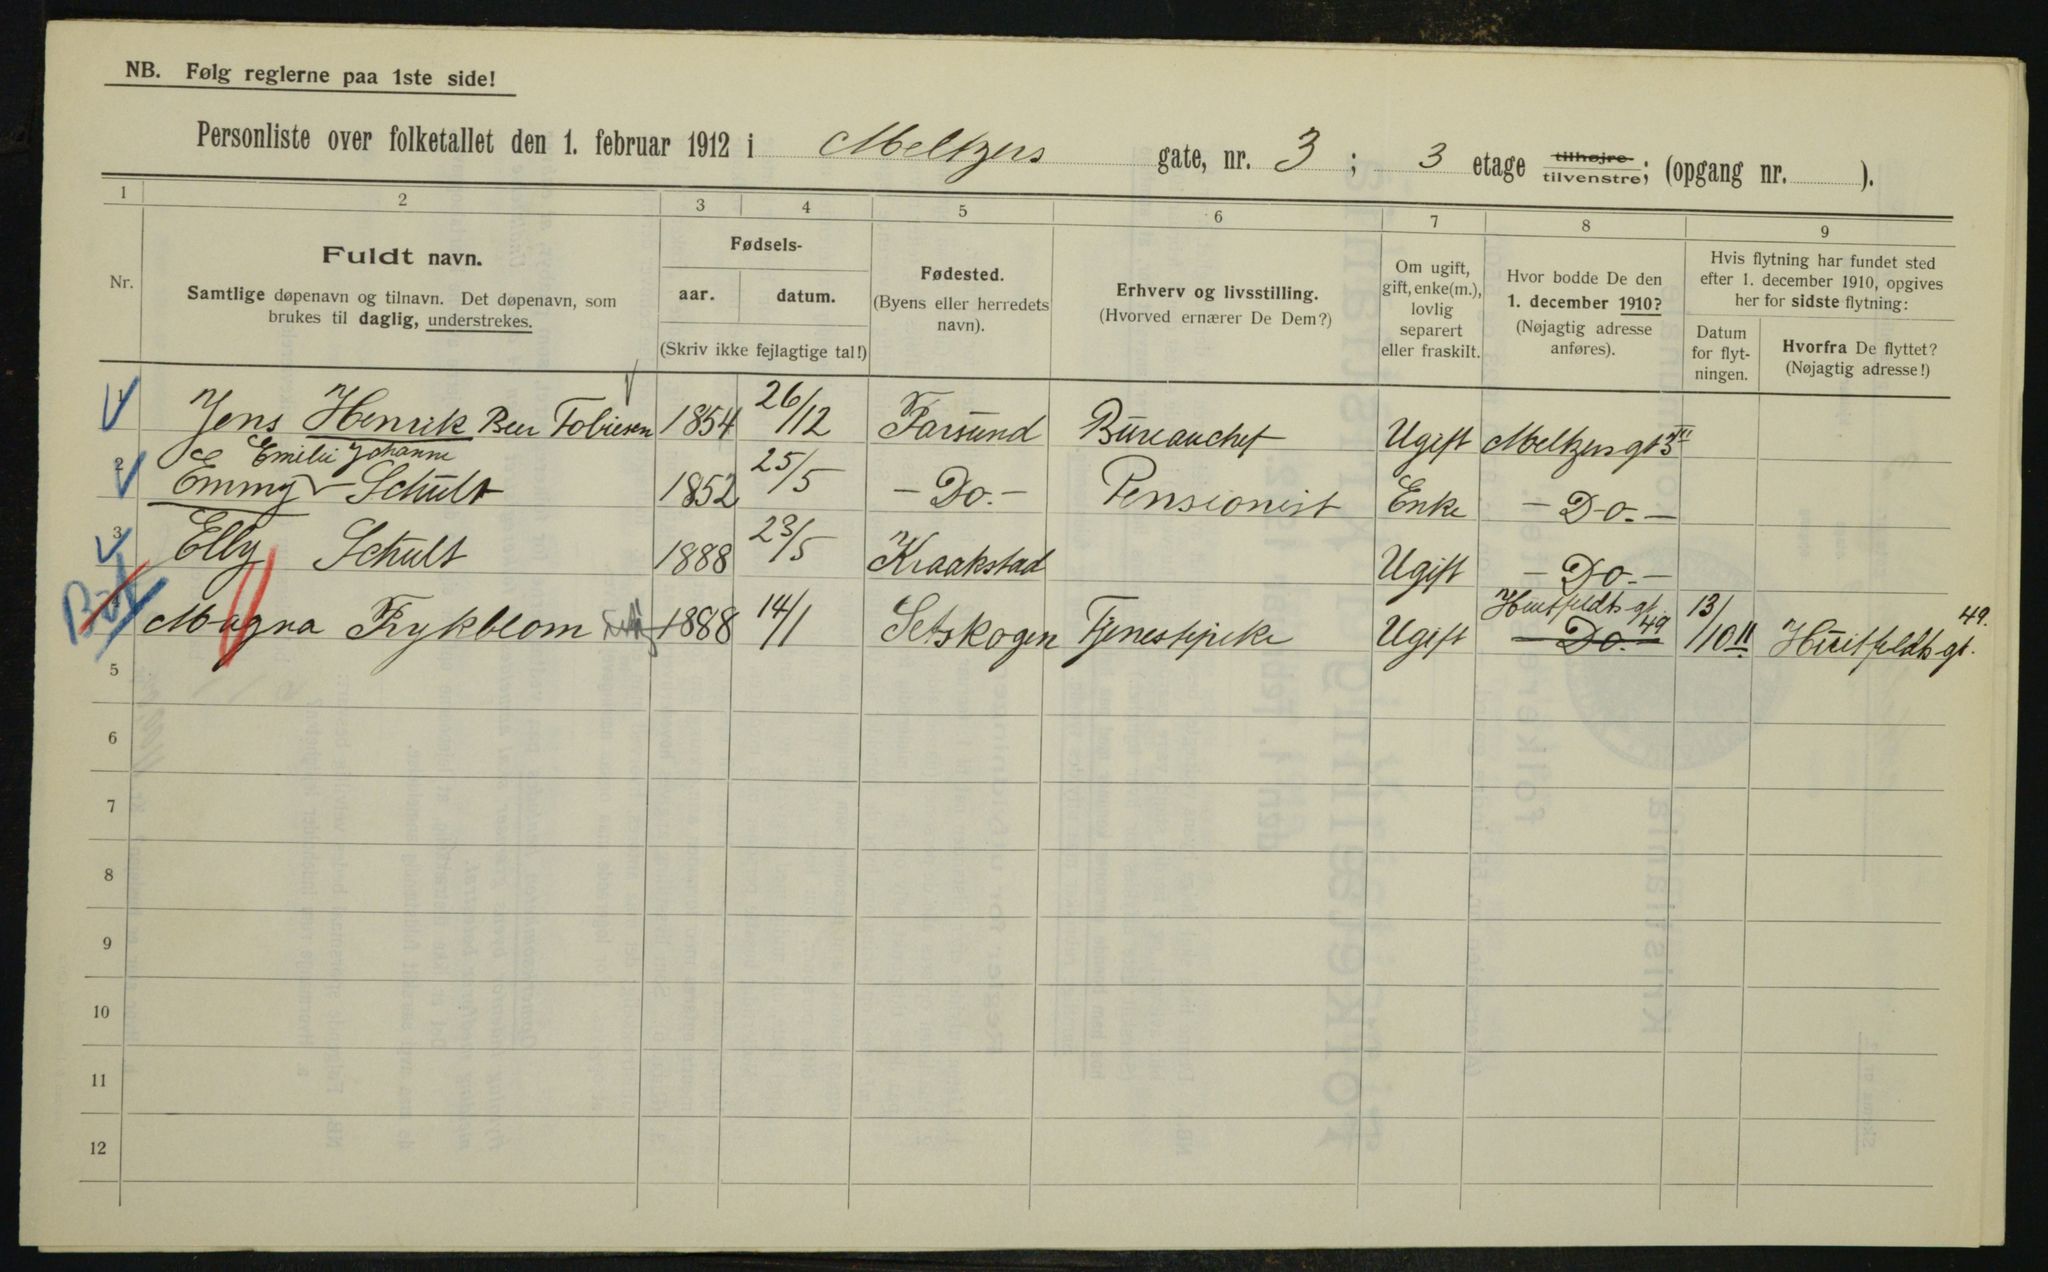 NB. Følg reglerne paa 1ste side!
Personliste over folketallet den 1. februar 1912 i Meltzers gate, nr. 3; 3 etage tilhøjre tilvenstre; (opgang nr. ).
1 2 3 4 5 6 7 8 9
Nr.
Fuldt navn.
Samtlige døpenavn og tilnavn. Det døpenavn, som
brukes til daglig, understrekes.
Fødsels-
aar. datum.
(Skriv ikke fejlagtige tal!)
Fødested.
(Byens eller herredets
navn).
Erhverv og livsstilling.
(Hvorved ernærer De Dem?)
Om ugift,
gift, enke(m.),
lovlig
separert
eller fraskilt.
Hvor bodde De den
1. december 1910?
(Nøjagtig adresse
anføres).
Hvis flytning har fundet sted
efter 1. december 1910, opgives
her for sidste flytning:
Datum
for flyt-
ningen.
Hvorfra De flyttet?
(Nøjagtig adresse!)
1 Jens Henrik Beer Tobiesen 1854 26/12 Farsund Büreauchef Ugift Meltzersgt 3 III
Emilie Johanne
2 Emmy Schult 1852 25/5 - Do. - Pensionist Enke - Do. -
3 Elly Schult 1888 23/5 Kraakstad Ugift - Do. -
4 Magna Frykblom 1888 14/1 Setskogen Tjenestepike Ugift Huitfeldts gt. 49 Do. 13/10 11 Huitfeldts gt. 49.
5
6
7
8
9
10
11
12